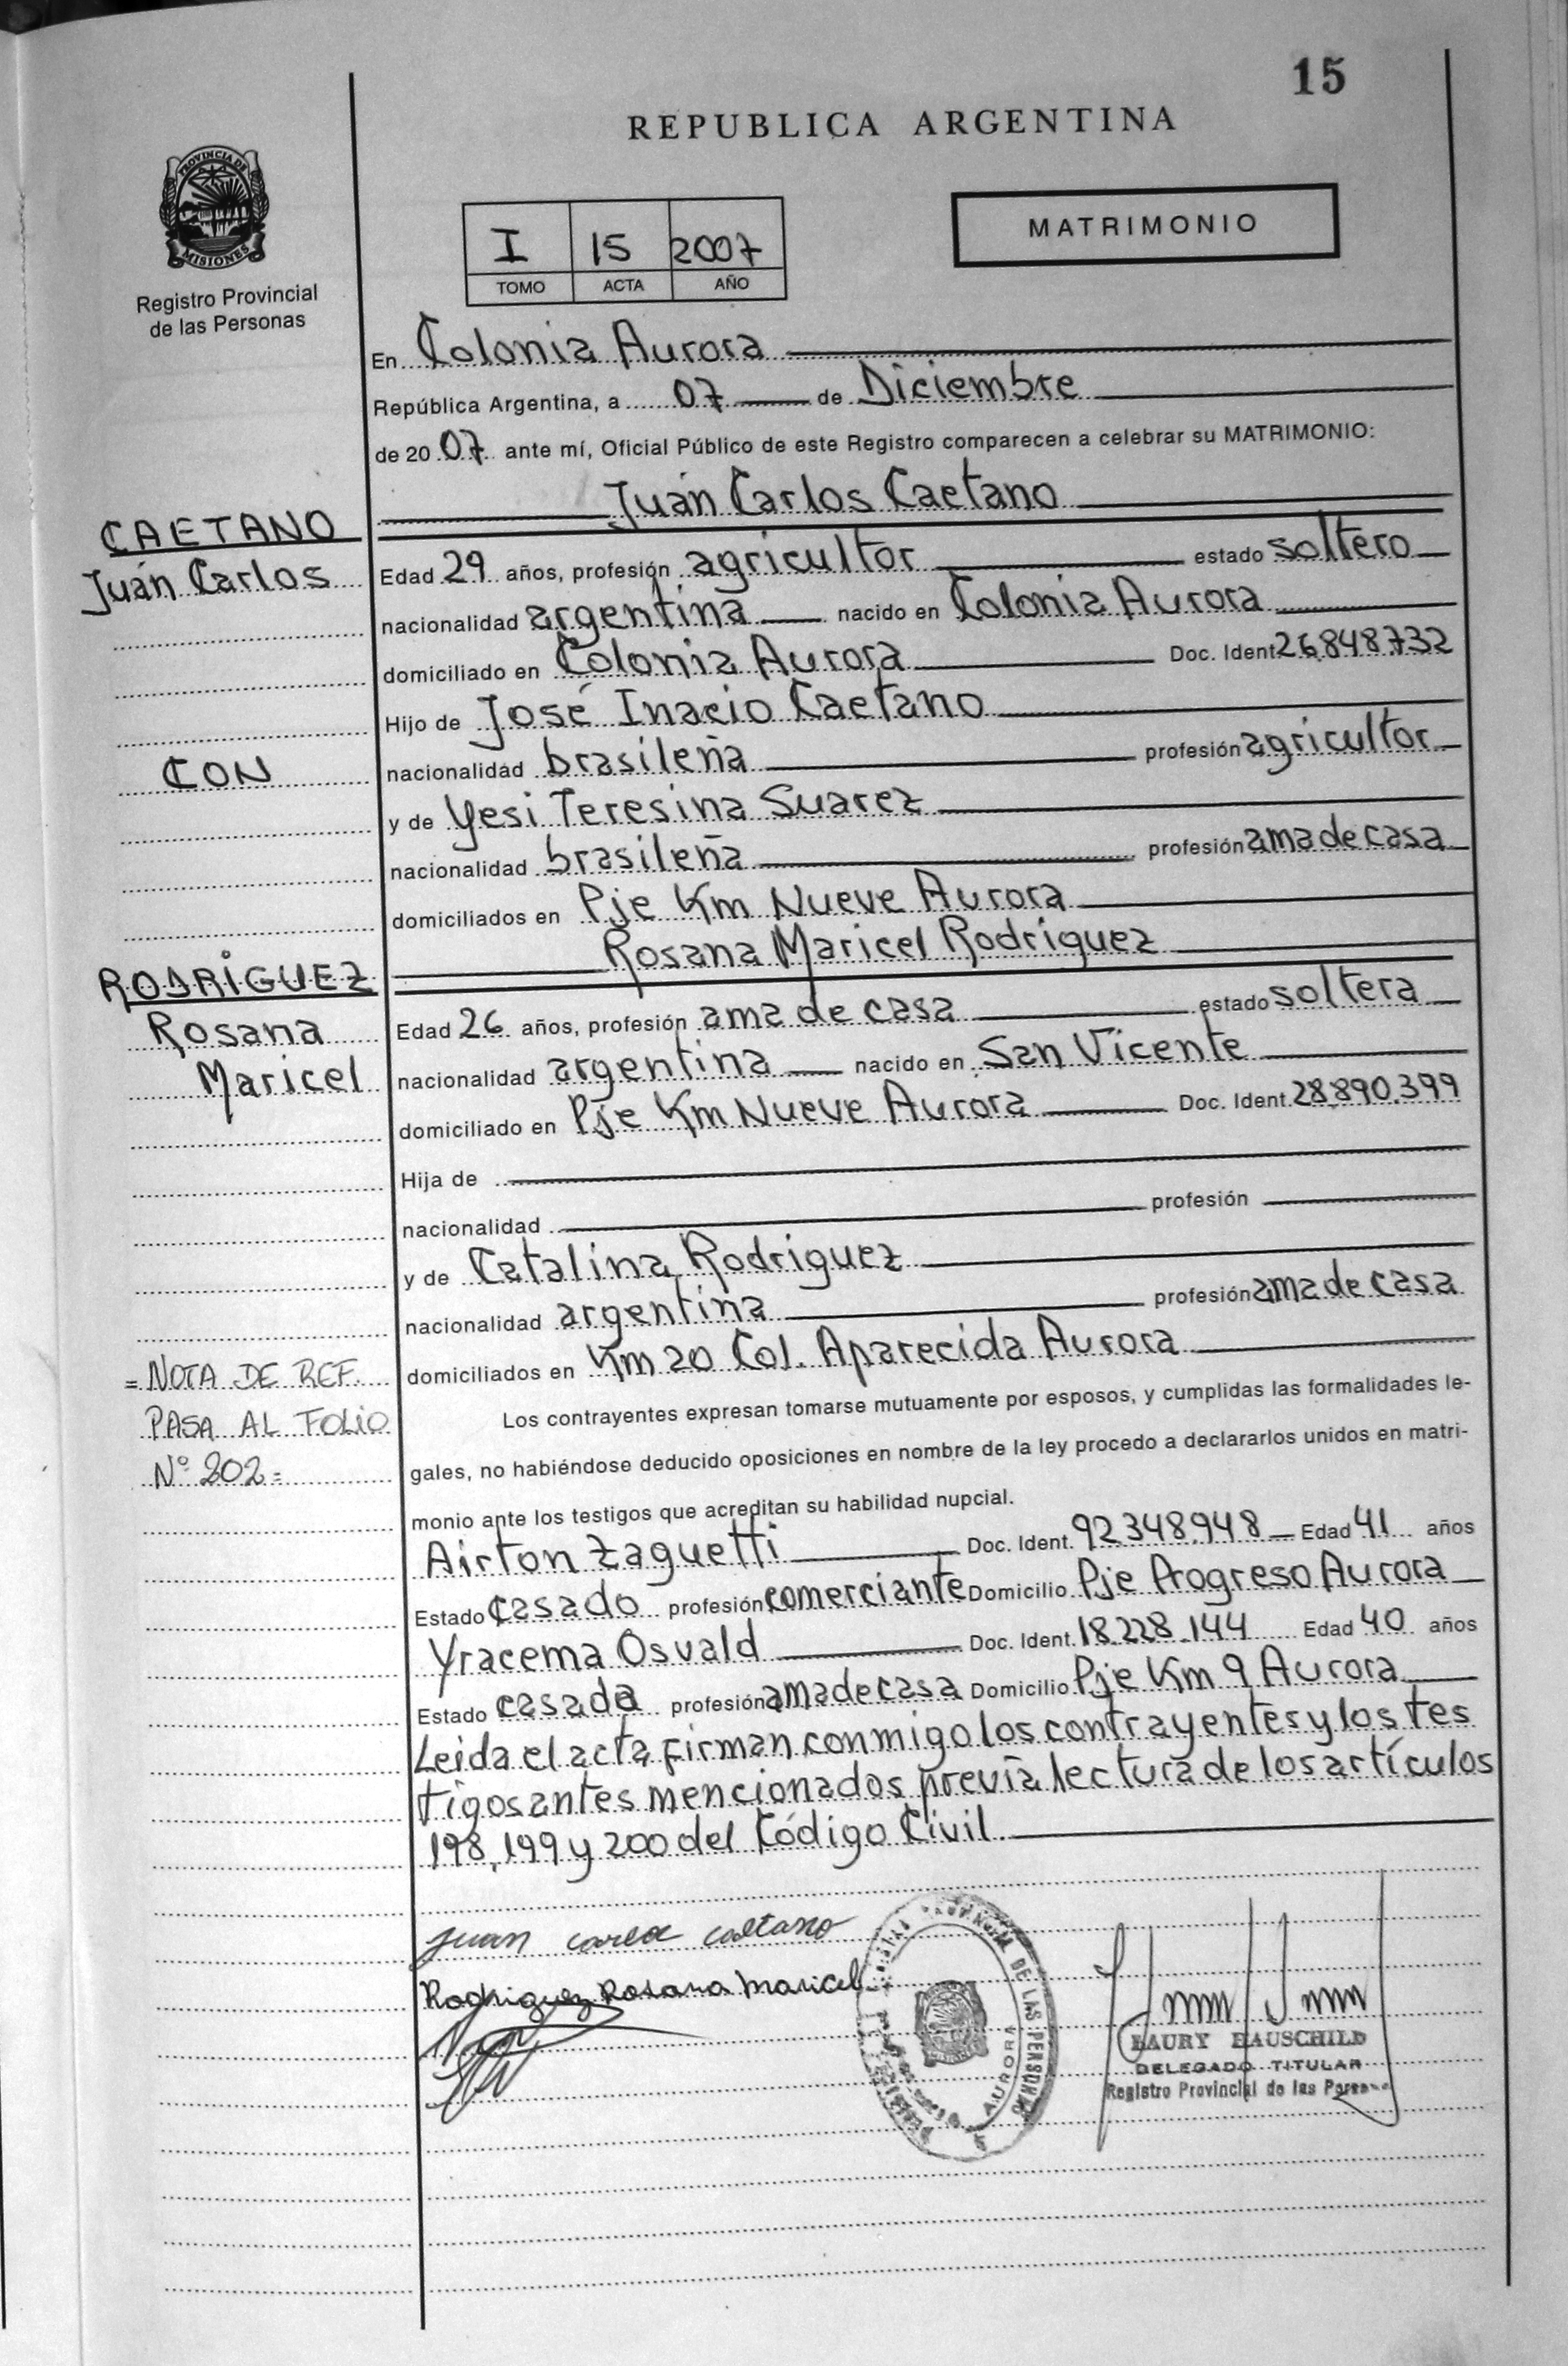 15
REPUBLICA ARGENTINA
PROVINCIA DE
MISIONES
Registro Provincial
de las Personas
I 15 2007
TOMO ACTA AÑO
MATRIMONIO
En Colonia Aurora
República Argentina, a 07 de Diciembre
de 20 07 ante mí, Oficial Público de este Registro comparecen a celebrar su MATRIMONIO:
Juán Carlos Caetano
CAETANO
Juán Carlos
Edad 29 años, profesión agricultor estado soltero
nacionalidad argentina nacido en Colonia Aurora
domiciliado en Colonia Aurora Doc. Ident 26.848.732
Hijo de José Inacio Caetano
CON
nacionalidad brasileña profesión agricultor
y de Yesi Teresina Suarez
nacionalidad brasileña profesión ama de casa
domiciliados en Pje Km Nueve Aurora
Rosana Maricel Rodriguez
RODRÍGUEZ
Rosana
Maricel
Edad 26 años, profesión ama de casa estado soltera
nacionalidad argentina nacido en San Vicente
domiciliado en Pje Km Nueve Aurora Doc. Ident. 28.890.399
Hija de
nacionalidad profesión
y de Catalina Rodriguez
nacionalidad argentina profesión ama de casa
domiciliados en Km 20 Col. Aparecida Aurora
= NOTA DE REF.
PASA AL FOLIO
Nº 202 =
Los contrayentes expresan tomarse mutuamente por esposos, y cumplidas las formalidades le-
gales, no habiéndose deducido oposiciones en nombre de la ley procedo a declararlos unidos en matri-
monio ante los testigos que acreditan su habilidad nupcial.
Airton Zaguetti Doc. Ident. 92.348.948 Edad 41 años
Estado casado profesión comerciante Domicilio Pje Progreso Aurora
Yracema Osvald Doc. Ident. 18.228.144 Edad 40 años
Estado casada profesión ama de casa Domicilio Pje Km 9 Aurora
Leida el acta firman conmigo los contrayentes y los tes
tigos antes mencionados previa lectura de los artículos
198, 199 y 200 del Código Civil.
Juan Carlos Caetano
Rodriguez Rosana Maricel
DE LAS PERSONAS
AURORA
LAURY HAUSCHILD
DELEGADO TITULAR
Registro Provincial de las Personas